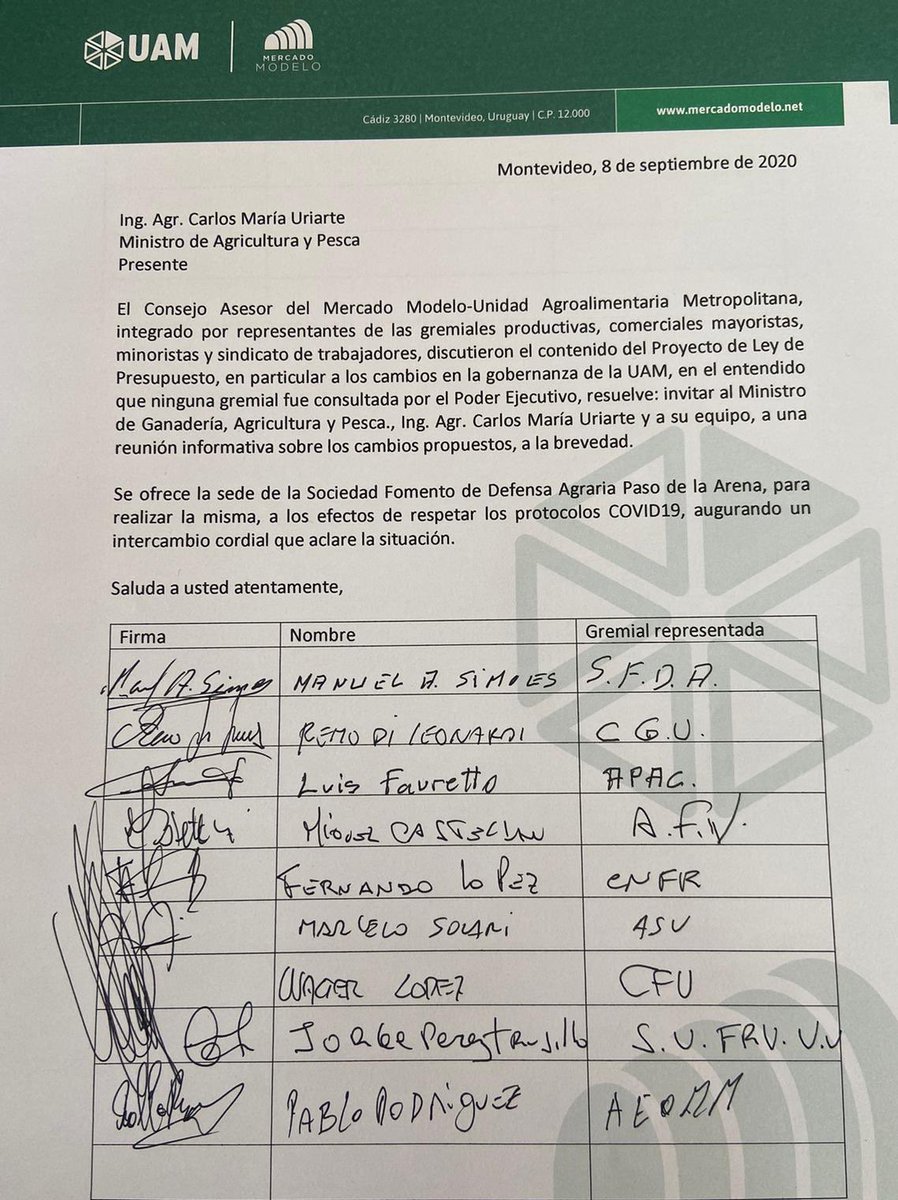 UAM
MERCADO
MODELO
Cádiz 3280 | Montevideo, Uruguay | C.P. 12.000
www.mercadomodelo.net
Montevideo, 8 de septiembre de 2020
Ing. Agr. Carlos María Uriarte
Ministro de Agricultura y Pesca
Presente
El Consejo Asesor del Mercado Modelo-Unidad Agroalimentaria Metropolitana,
integrado por representantes de las gremiales productivas, comerciales mayoristas,
minoristas y sindicato de trabajadores, discutieron el contenido del Proyecto de Ley de
Presupuesto, en particular a los cambios en la gobernanza de la UAM, en el entendido
que ninguna gremial fue consultada por el Poder Ejecutivo, resuelve: invitar al Ministro
de Ganadería, Agricultura y Pesca., Ing. Agr. Carlos María Uriarte y a su equipo, a una
reunión informativa sobre los cambios propuestos, a la brevedad.
Se ofrece la sede de la Sociedad Fomento de Defensa Agraria Paso de la Arena, para
realizar la misma, a los efectos de respetar los protocolos COVID19, augurando un
intercambio cordial que aclare la situación.
Saluda a usted atentamente,
Firma Nombre Gremial representada
MANUEL A. SIMOES S.F.D.A.
REMO DI LEONARDI C G.U.
Luis Favretto APAC.
MIGUEL A.F.V.
FERNANDO LOPEZ CNFR
MARCELO SOLARI ASU
LOPEZ CFU
JORGE Perez Trujillo S.U. FRV. V.U
PABLO RODRIGUEZ